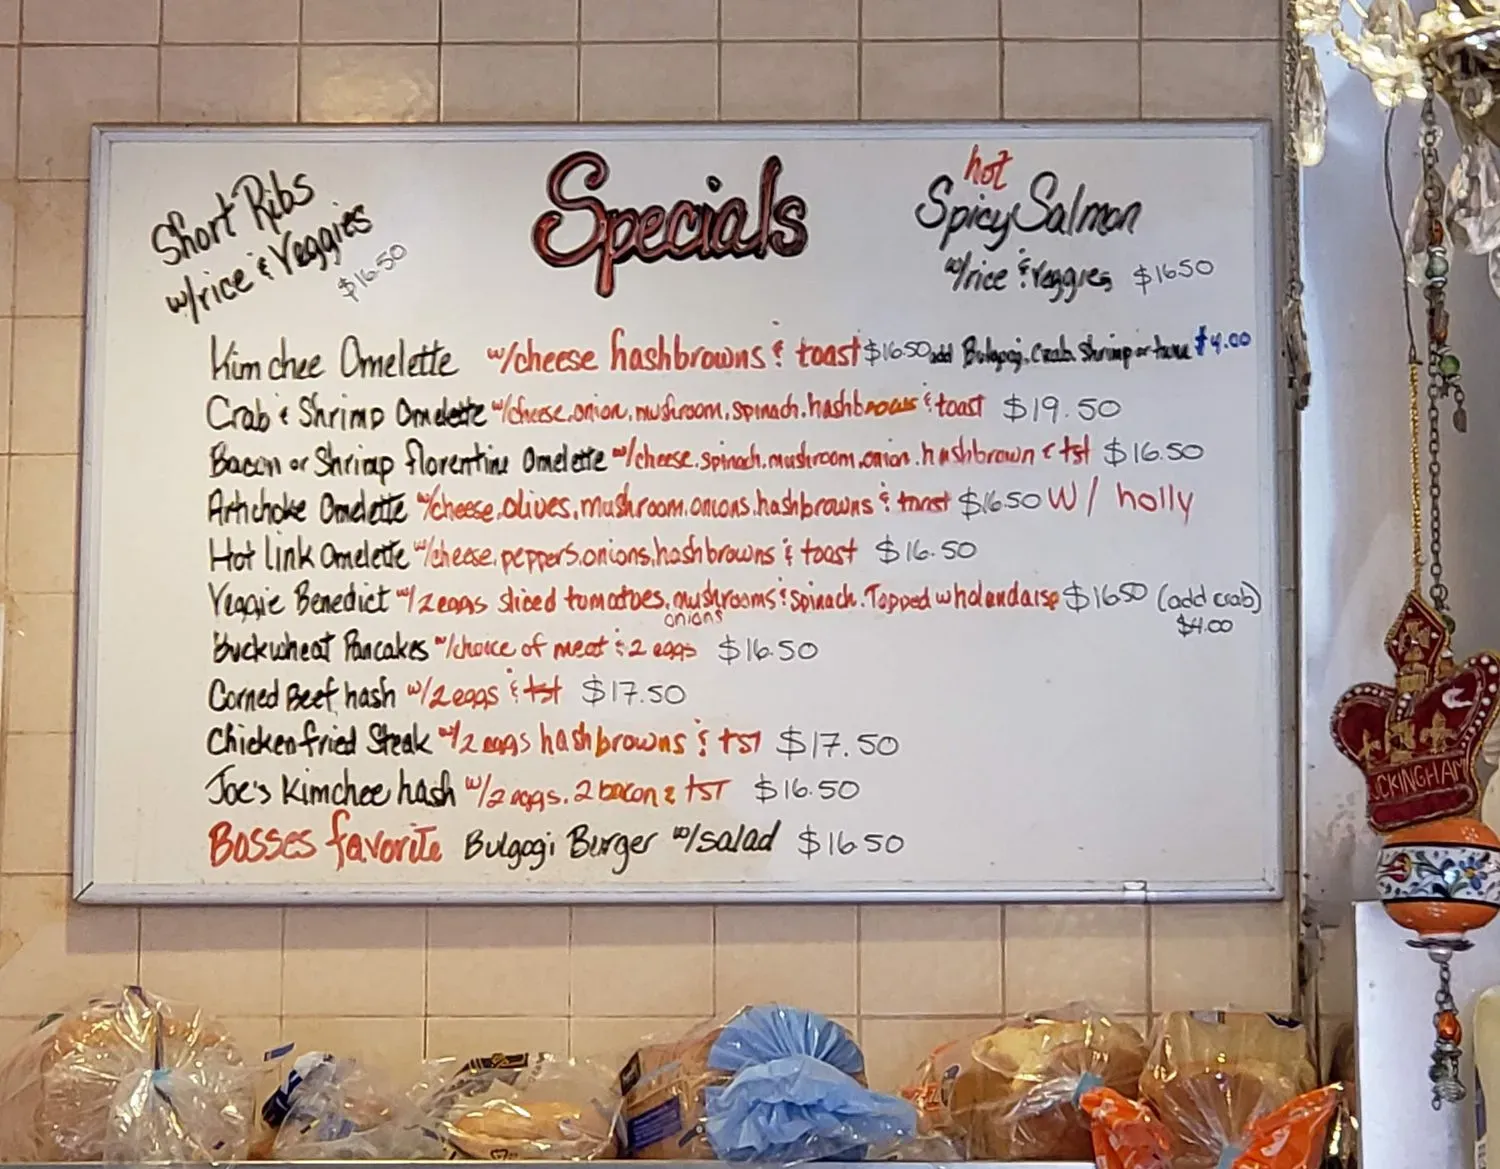 Short Ribs
w/rice & Veggies
$16.50
Specials
hot
Spicy Salmon
w/rice & veggies $16.50
Kimchee Omelette w/cheese hashbrowns & toast $16.50 add Bulgogi, Crab, Shrimp or tuna $4.00
Crab & Shrimp Omelette w/cheese, onion, mushroom, spinach, hashbrowns & toast $19.50
Bacon or Shrimp florentine Omelette w/cheese, spinach, mushroom, onion, hashbrown & tst $16.50
Artichoke Omelette w/cheese, olives, mushroom, onions, hashbrowns & toast $16.50 W/ holly
Hot Link Omelette w/cheese, peppers, onions, hashbrowns & toast $16.50
Veggie Benedict w/2 eggs sliced tomatoes, mushrooms & spinach. Topped w holandaise $16.50 (add crab)
onions $4.00
Buckwheat Pancakes w/choice of meat & 2 eggs $16.50
Corned Beef hash w/2 eggs & tst $17.50
Chicken fried Steak w/2 eggs hashbrowns & tst $17.50
Joe's Kimchee hash w/2 eggs, 2 bacon & tst $16.50
Bosses favorite Bulgogi Burger w/salad $16.50
UCKINGHAM